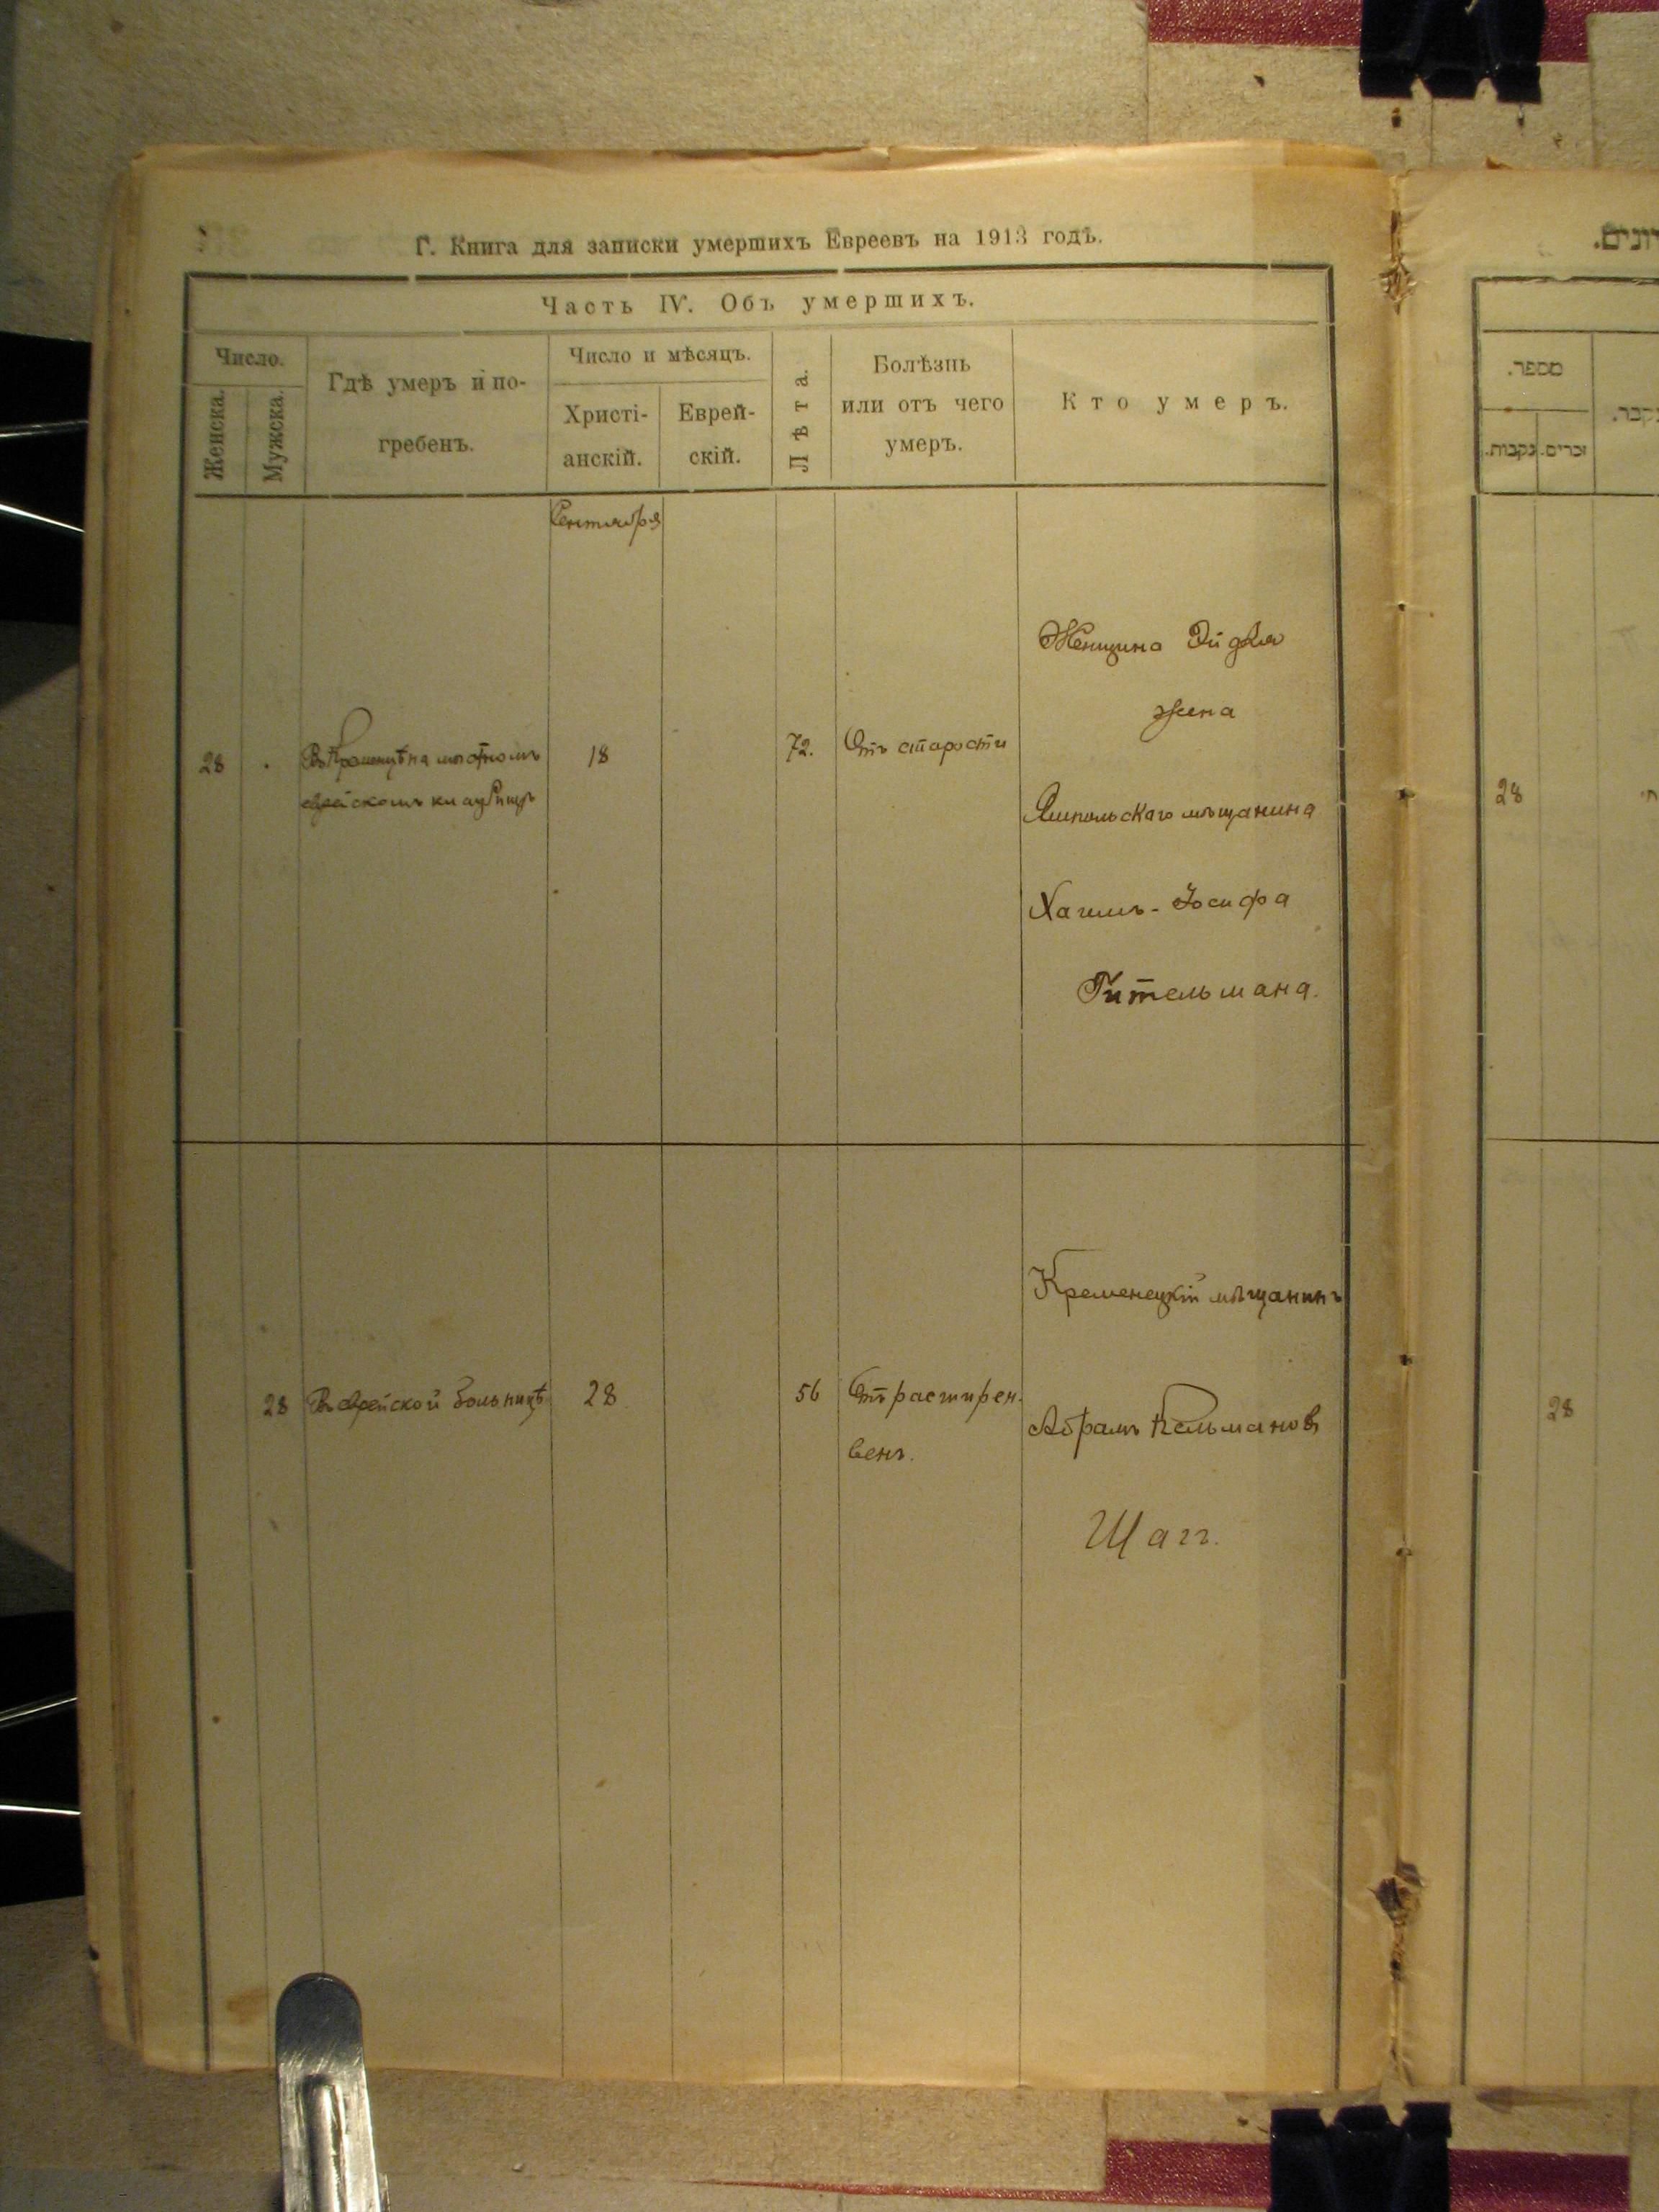 Г. Книга для записки умершихъ Евреевъ на 1913 годъ.
Часть IV. Объ умершихъ.
Число.
Женска.
Мужска.
Гдѣ умеръ и по-
гребенъ.
Число и мѣсяцъ.
Христі-
анскій.
Еврей-
скій.
Лѣта.
Болѣзнь
или отъ чего
умеръ.
Кто умеръ.
Сентября
28
Въ Кременцѣ на мѣстномъ
еврейскомъ кладбищѣ
18
72.
Отъ старости
Женщина Эйдля
жена
Ямпольскаго мѣщанина
Хаимъ-Іосифа
Гительмана.
28
Въ еврейской больницѣ
28
56
Отъ расширен.
венъ.
Кременецкій мѣщанинъ
Абрамъ Кельмановъ
Шагъ.
מספר.
נקבות.
זכרים.
28
28